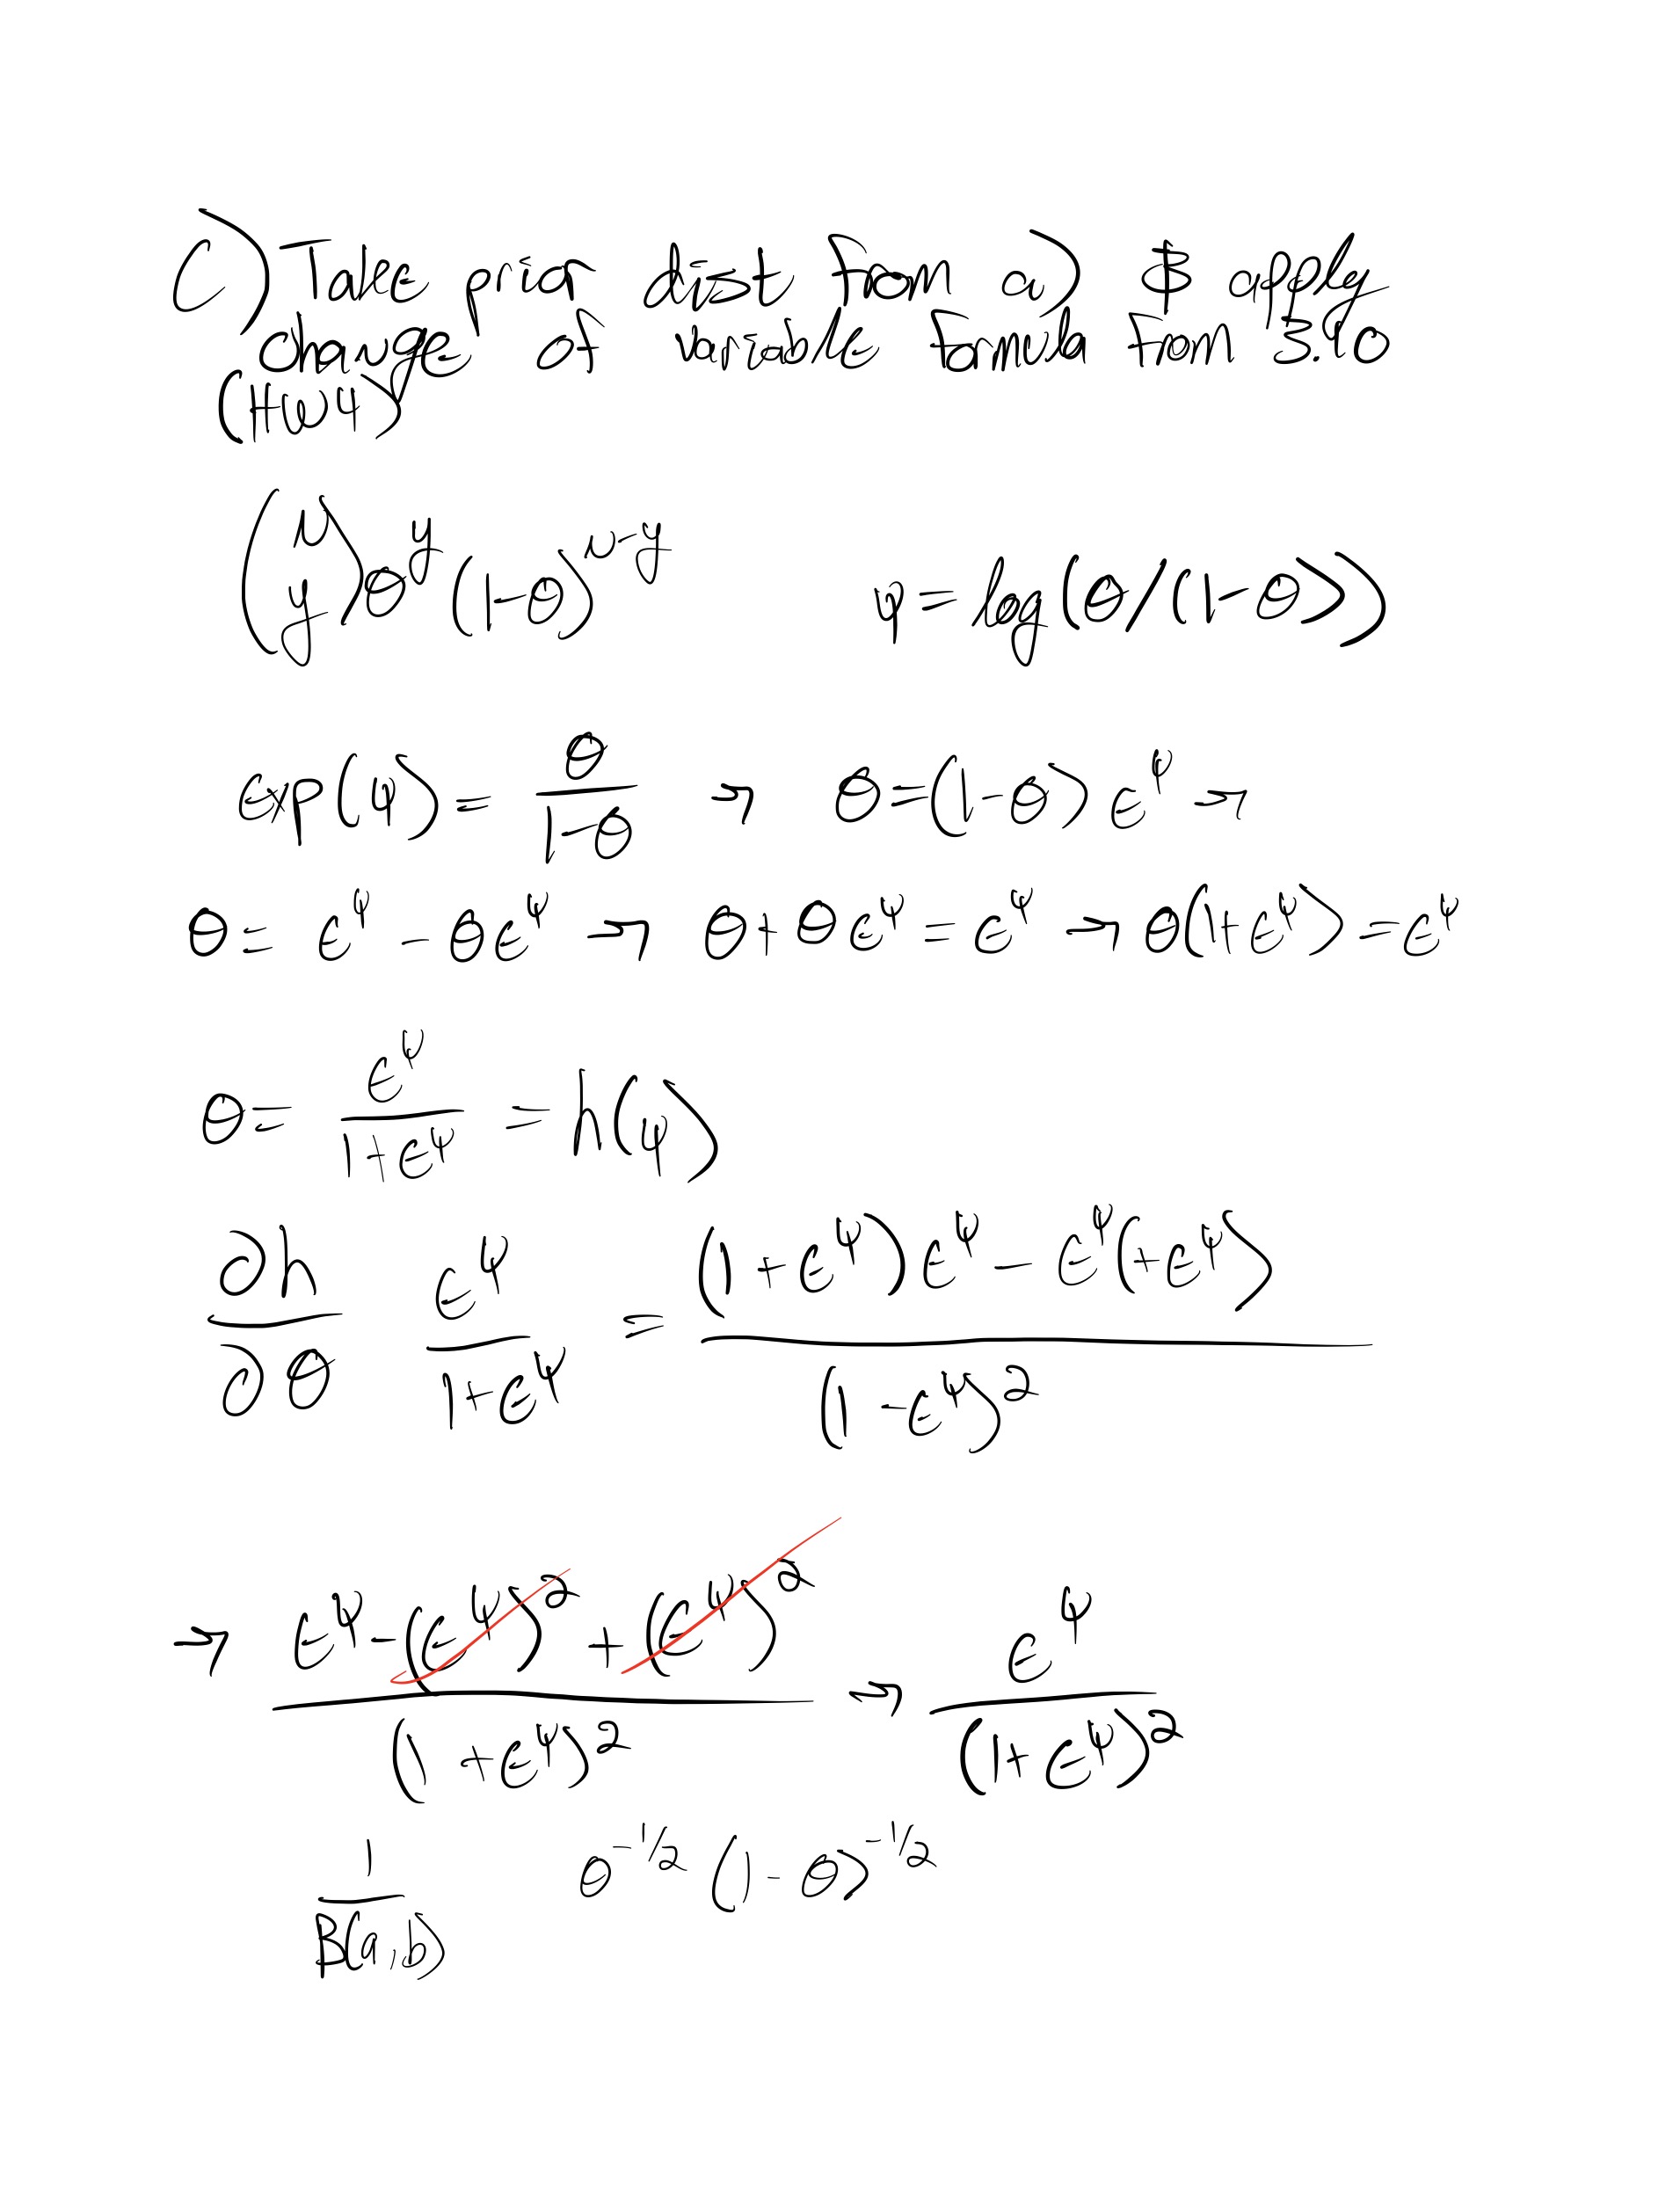 c) Take prior dist from a) & apply
change of variable formula from 3.10
(HW4)
(n y) θ^y (1-θ)^(n-y)    ψ = log(θ/(1-θ))
exp(ψ) = θ/(1-θ) → θ=(1-θ) e^ψ →
θ = e^ψ - θe^ψ → θ + θe^ψ = e^ψ → θ(1+e^ψ) = e^ψ
θ = e^ψ/(1+e^ψ) = h(ψ)
∂h/∂θ e^ψ/(1+e^ψ) = ((1+e^ψ)e^ψ - e^ψ(+e^ψ))/(1-e^ψ)^2
→ (e^ψ - (e^ψ)^2 + (e^ψ)^2)/(1+e^ψ)^2 → e^ψ/(1+e^ψ)^2
1/B(a,b) θ^(-1/2) (1-θ)^(-1/2)